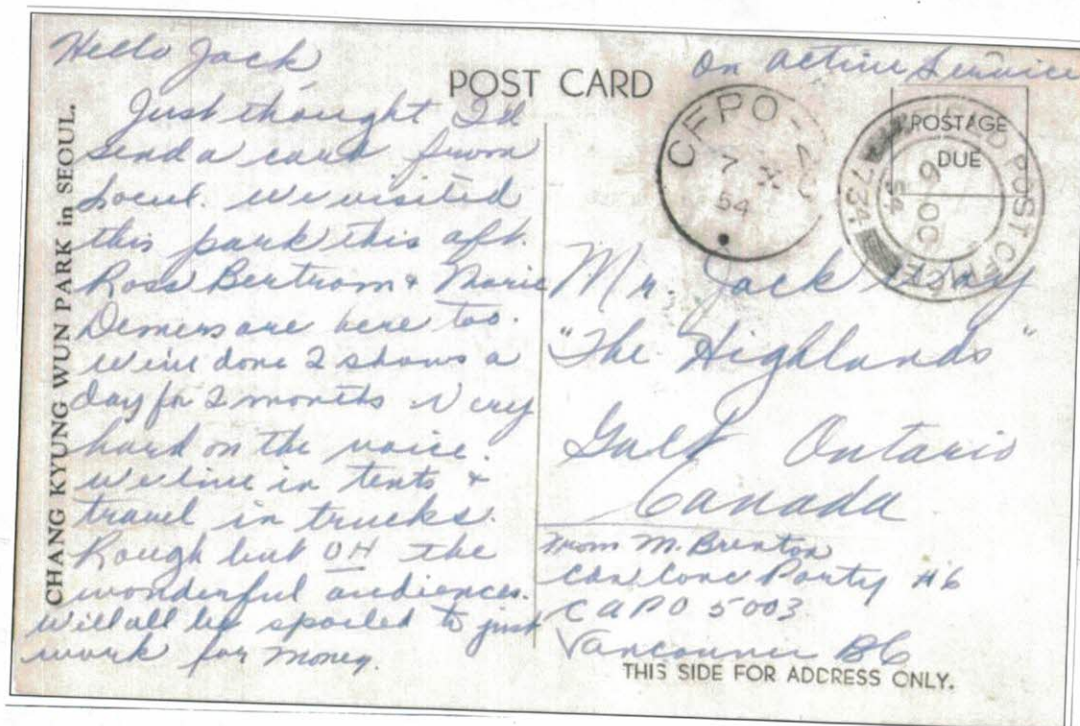 CHANG KYUNG WUN PARK in SEOUL.
Hello Jack,
Just thought I'd
send a card from
Seoul. We visited
this park this aft.
Ross Bertram & Marie
Demers are here too.
We've done 2 shows a
day for 2 months. Very
hard on the voice.
We live in tents &
travel in trucks.
Rough but OH the
wonderful audiences.
Will all be spoiled to just
work for money.
POST CARD
On Active Service
CFPO
7 X
54
POSTAGE
DUE
FIELD POST OFFICE
734
6 OC
54
Mr. Jack
"The Highlands"
Galt Ontario
Canada
From M. Brenton
Cdn Conc Party #6
CAPO 5003
Vancouver BC
THIS SIDE FOR ADDRESS ONLY.